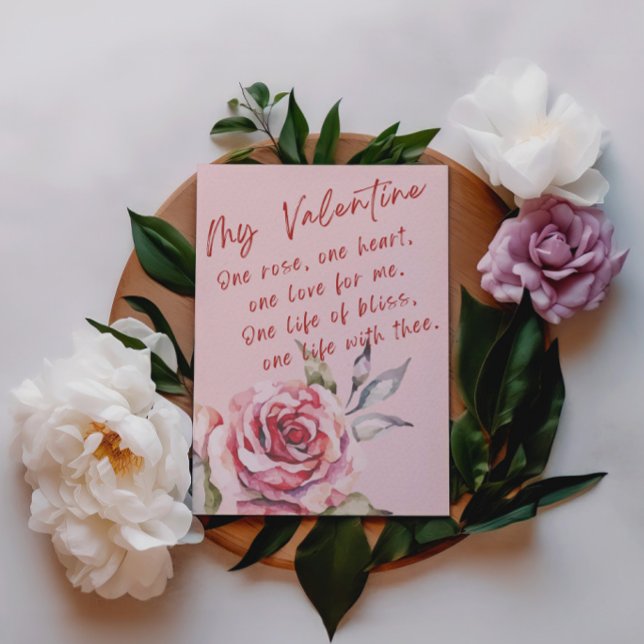 My Valentine
One rose, one heart,
one love for me.
One life of bliss,
one life with thee.